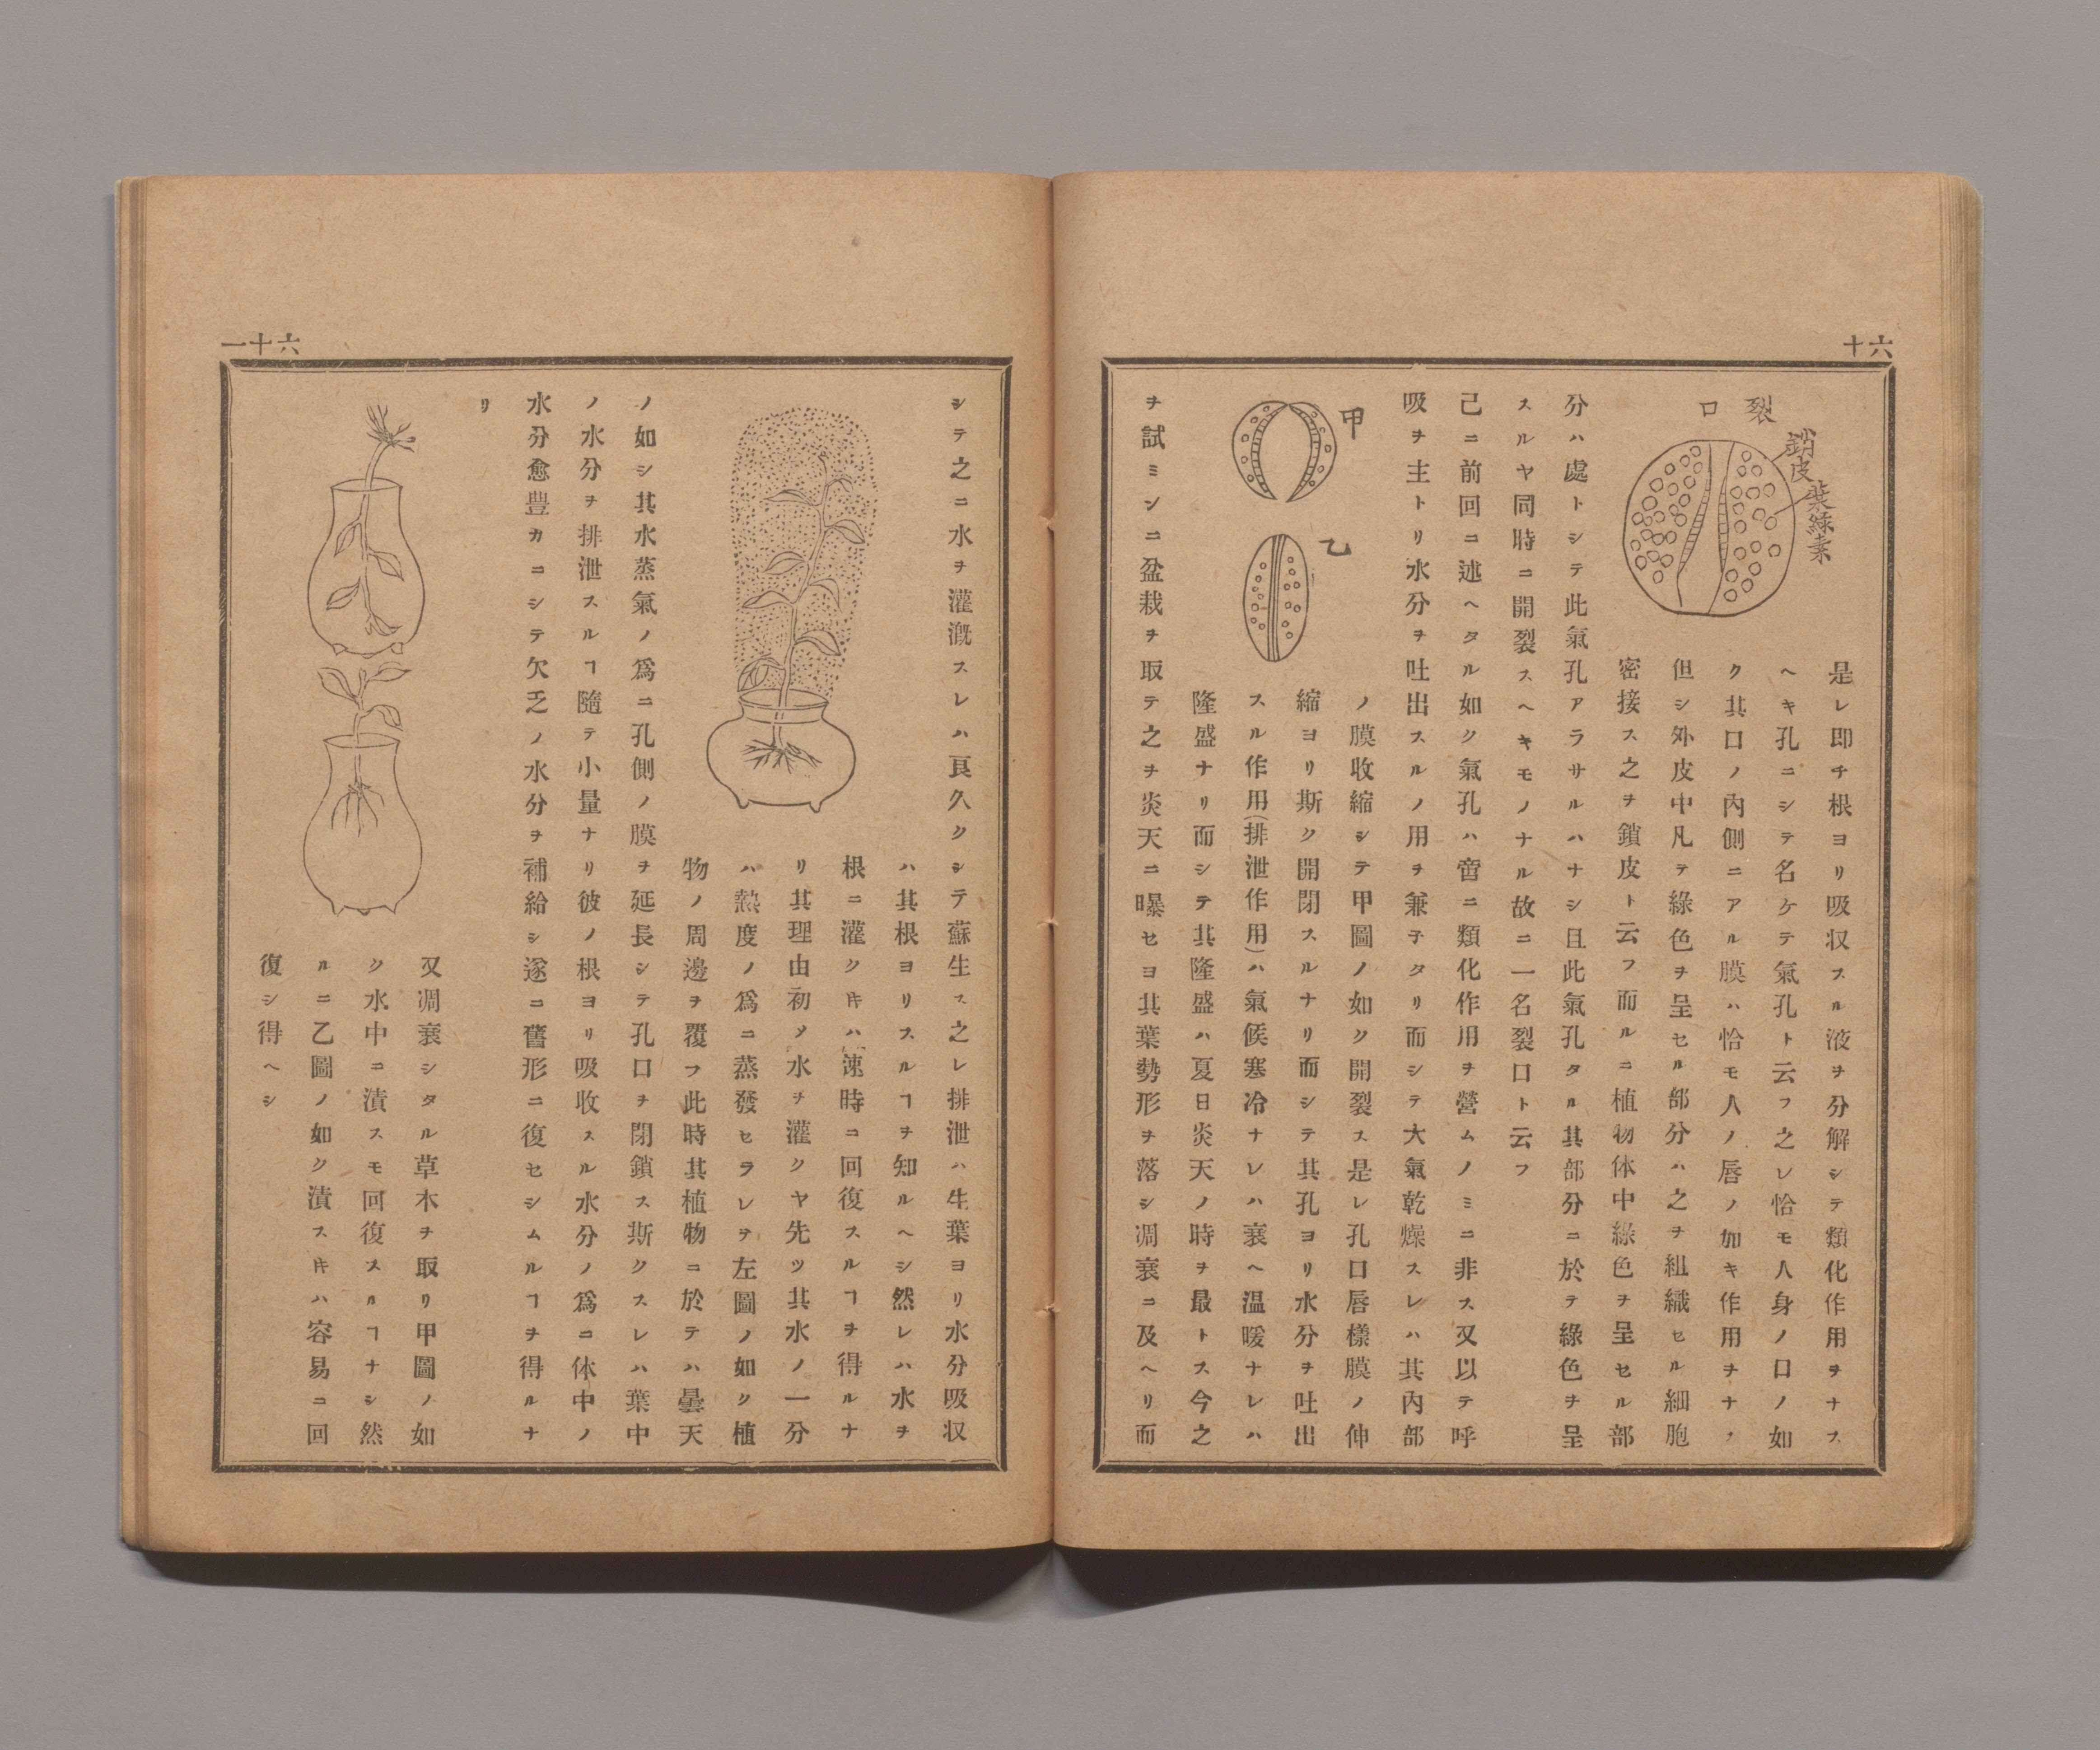 六十
裂口
鎖皮
葉綠素
是レ即チ根ヨリ吸収スル液ヲ分解シテ類化作用ヲナス
ヘキ孔ニシテ名ケテ氣孔ト云フ之レ恰モ人身ノ口ノ如
ク其口ノ內側ニアル膜ハ恰モ人ノ唇ノ如キ作用ヲナス
但シ外皮中凡テ綠色ヲ呈セル部分ハ之ヲ組織セル細胞
密接ス之ヲ鎖皮ト云フ而ルニ植物体中綠色ヲ呈セル部
分ハ處トシテ此氣孔アラサルハナシ且此氣孔タル其部分ニ於テ綠色ヲ呈
スルヤ同時ニ開裂スヘキモノナル故ニ一名裂口ト云フ
己ニ前回ニ述ヘタル如ク氣孔ハ啻ニ類化作用ヲ營ムノミニ非ス又以テ呼
吸ヲ主トリ水分ヲ吐出スルノ用ヲ兼子タリ而シテ大氣乾燥スレハ其內部
甲
乙
ノ膜收縮シテ甲圖ノ如ク開裂ス是レ孔口唇樣膜ノ伸
縮ヨリ斯ク開閉スルナリ而シテ其孔ヨリ水分ヲ吐出
スル作用(排泄作用)ハ氣候寒冷ナレハ衰ヘ温暖ナレハ
隆盛ナリ而シテ其隆盛ハ夏日炎天ノ時ヲ最トス今之
ヲ試ミンニ盆栽ヲ取テ之ヲ炎天ニ曝セヨ其葉勢形ヲ落シ凋衰ニ及ヘリ而
六十一
シテ之ニ水ヲ灌漑スレハ良久クシテ蘇生ス之レ排泄ハ生葉ヨリ水分吸収
ハ其根ヨリスルヿヲ知ルヘシ然レハ水ヲ
根ニ灌クキハ速時ニ回復スルヿヲ得ルナ
リ其理由初メ水ヲ灌クヤ先ツ其水ノ一分
ハ熱度ノ爲ニ蒸發セラレテ左圖ノ如ク植
物ノ周邊ヲ覆フ此時其植物ニ於テハ曇天
ノ如シ其水蒸氣ノ爲ニ孔側ノ膜ヲ延長シテ孔口ヲ閉鎖ス斯クスレハ葉中
ノ水分ヲ排泄スルヿ隨テ小量ナリ彼ノ根ヨリ吸收スル水分ノ爲ニ体中ノ
水分愈豊カニシテ欠乏ノ水分ヲ補給シ遂ニ舊形ニ復セシムルヿヲ得ルナ
リ
又凋衰シタル草木ヲ取リ甲圖ノ如
ク水中ニ漬スモ回復スルヿナシ然
ルニ乙圖ノ如ク漬スキハ容易ニ回
復シ得ヘシ